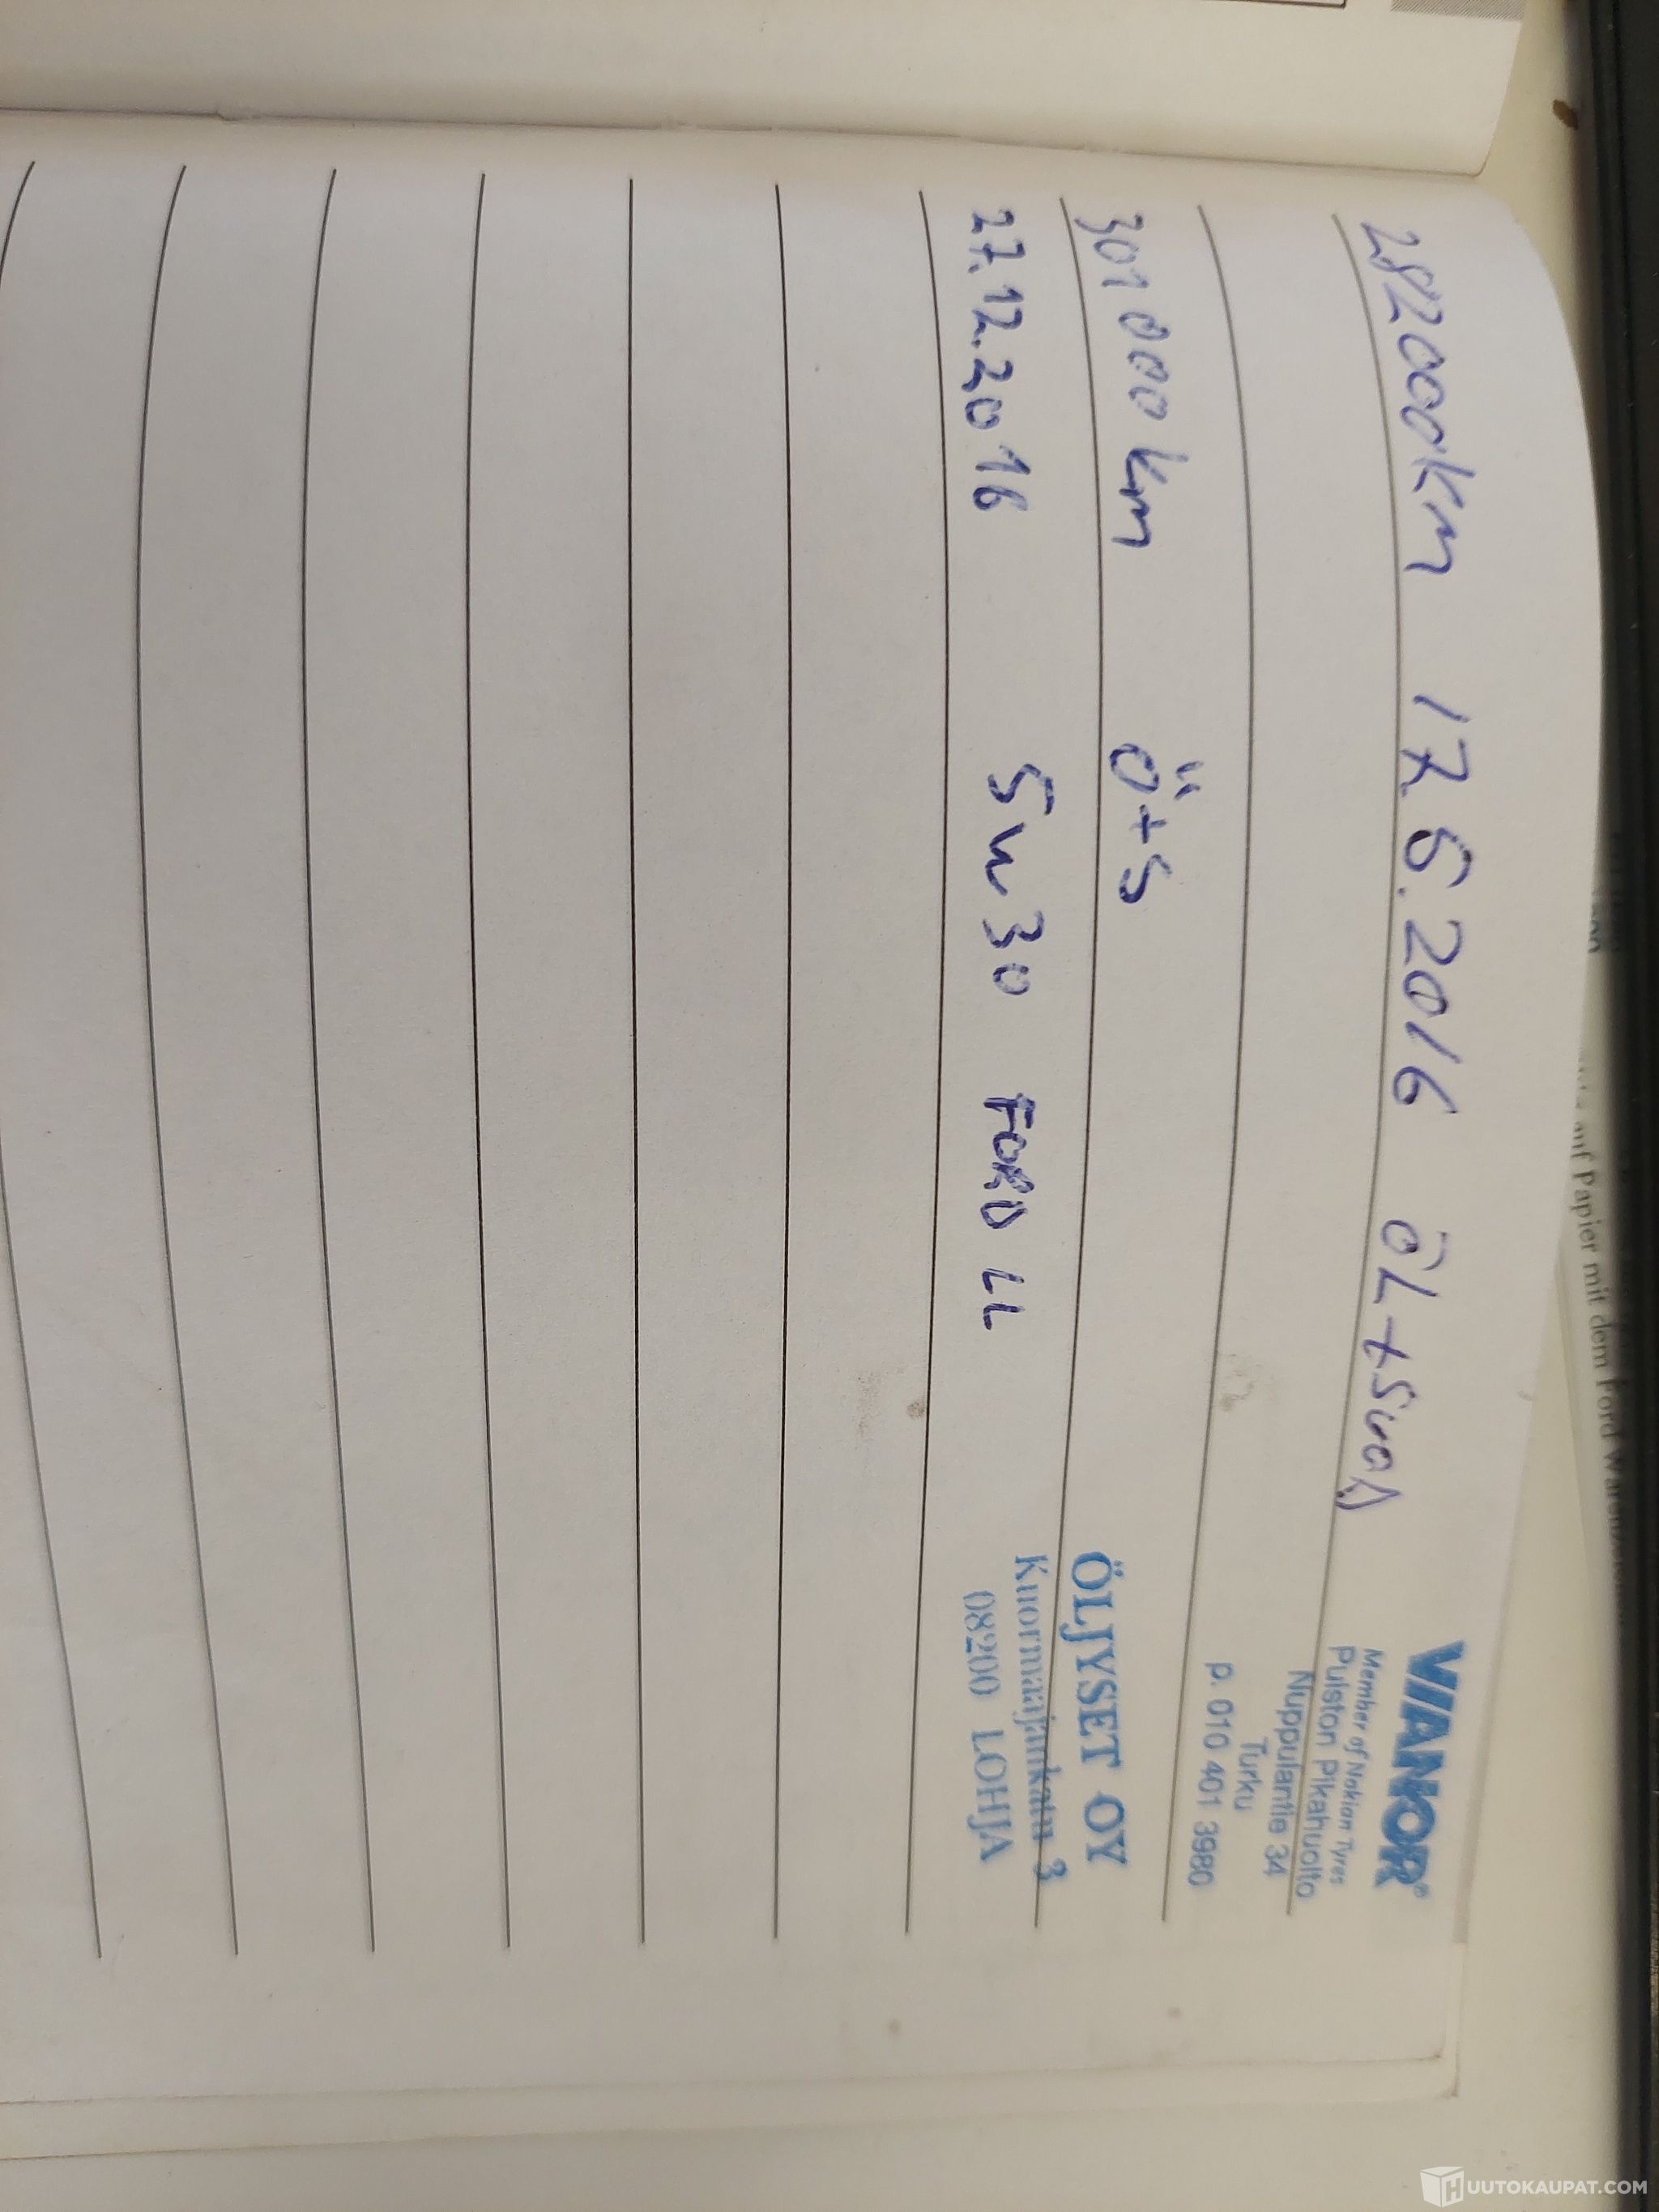 282000km 17.6.2016 ÖL+SUOD
VIANOR®
Member of Nokian Tyres
Pulston Pikahuolto
Nuppulantie 34
Turku
p. 010 401 3980
301000 km Ö+S
27.12.2016 5w30 FORD LL
ÖLJYSET OY
Kuormaajankatu 3
08200 LOHJA
auf Papier mit dem Ford
HUUTOKAUPAT.COM